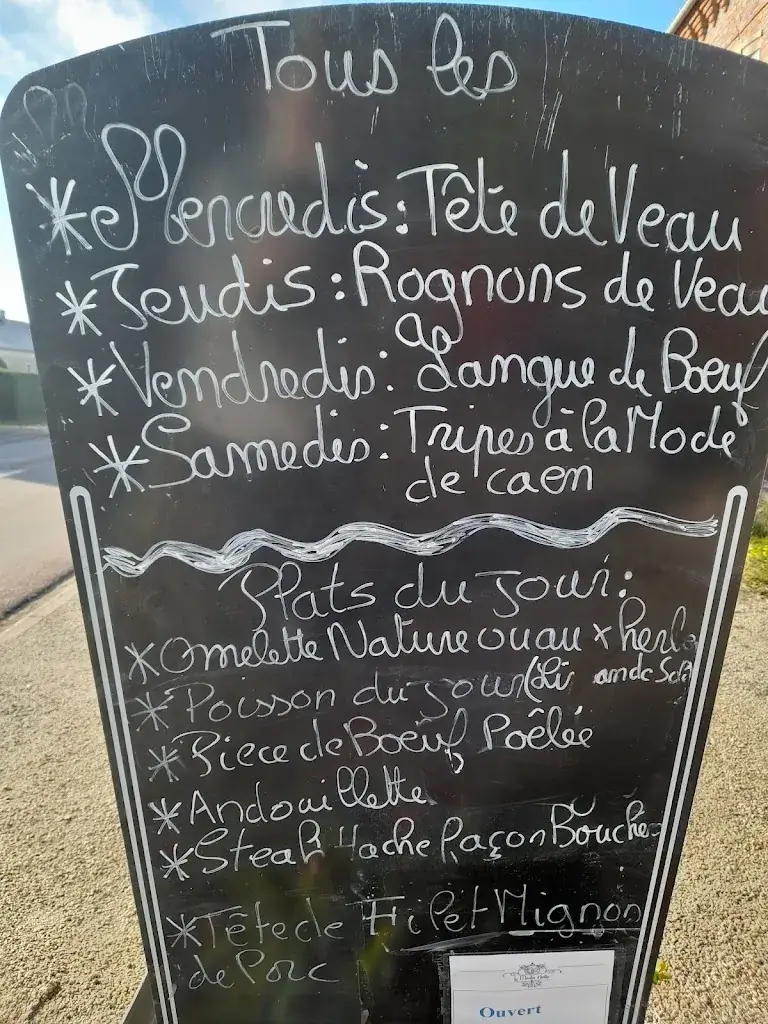 Tous les
* Mercredis: Tête de Veau
* Jeudis: Rognons de Veau
* Vendredis: Langue de Boeuf
* Samedis: Tripes à la Mode
de caen
Plats du jour:
* Omelette Nature ou aux
* Poisson du jour
* Piece de Boeuf Poêlée
* Andouillette
* Steak Hache façon Boucher
* Tête de Filet Mignon
de Porc
Ouvert